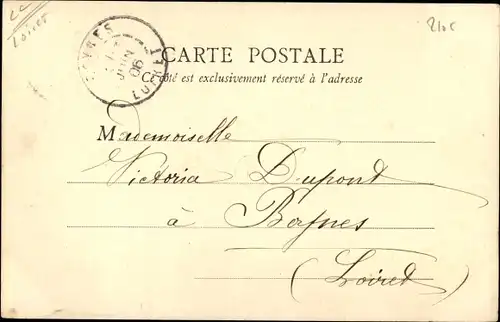 Loiret
210c
CARTE POSTALE
Ce côté est exclusivement réservé à l'adresse
JUIN
06
LOIRET
Mademoiselle
Victoria Dupont
à Boynes
(Loiret)